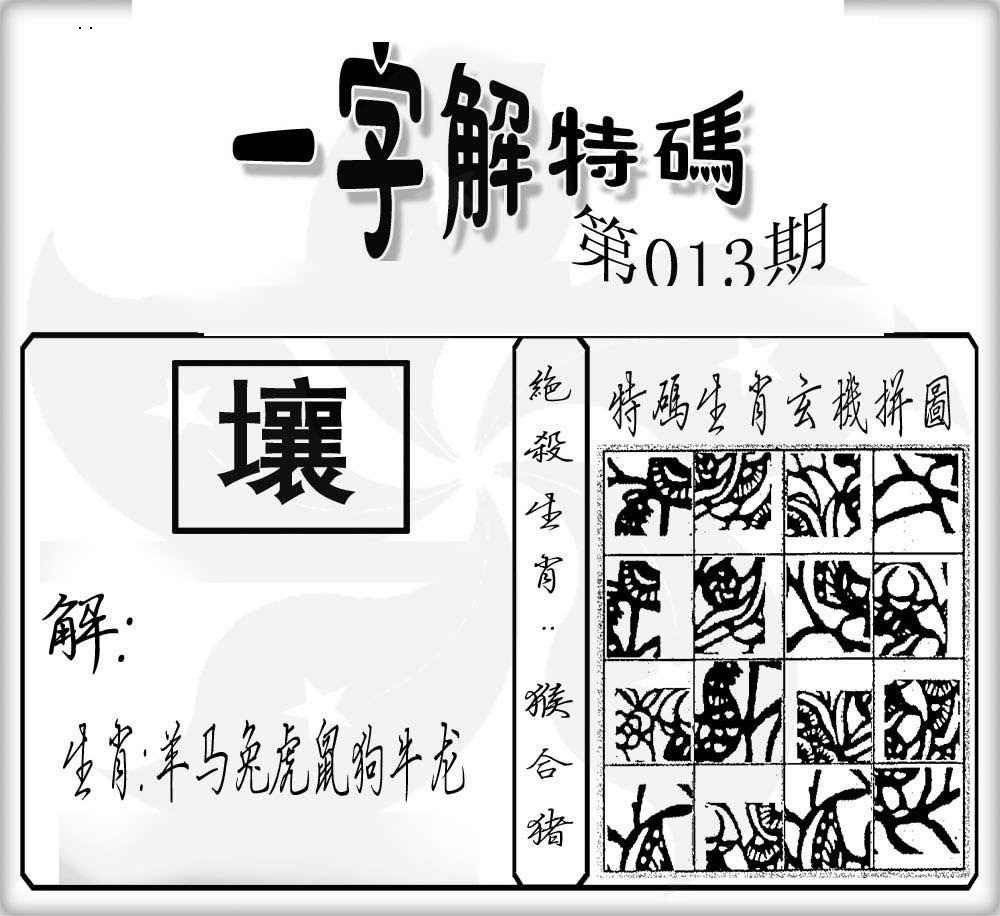 一字解特碼
第013期
壤
解:
生肖:羊马兔虎鼠狗牛龙
絶殺生肖:猴合猪
特碼生肖玄機拼圖